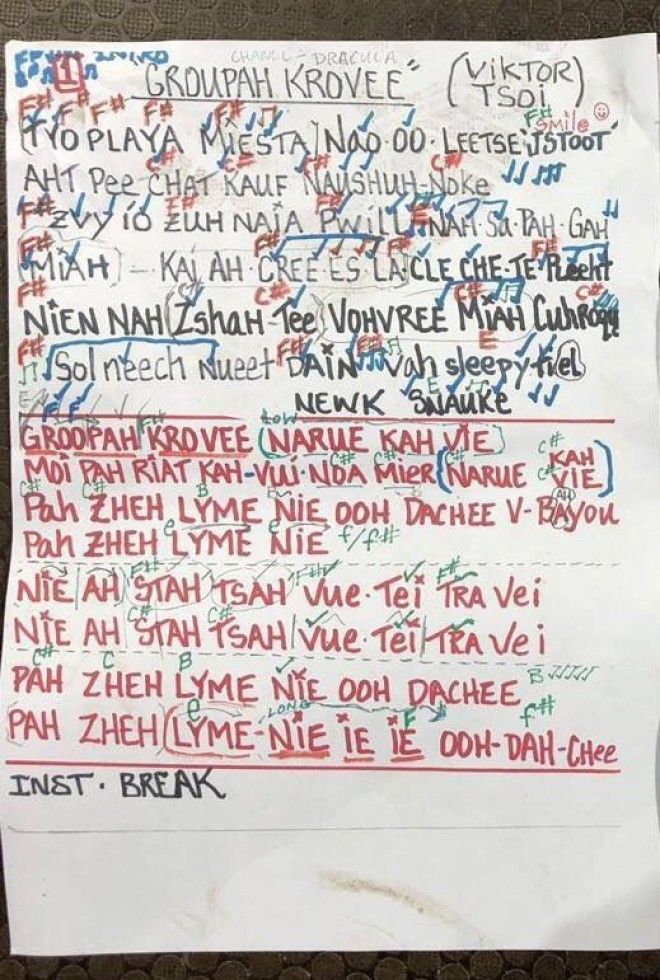 1
CHANL - DRACULA
"GROUPAH KROVEE" (VIKTOR TSOI)
F# F# F# F# F# F# Smile
(TVO PLAYA MiESTA) NAO·OO·LEETSE 'JSTOOT'
C# C# C#
AHT Pee CHAT KAUF NAUSHUH-NOKE
F# F# F# E
ZVY iO ZUH NAJA PWiLL NAH·Sa·PAH·GAH
F# F# F# F#
(MiAH) - KAJ AH·CREE·ES LA·CLE CHE·TE PLeeht
F# C# C# C#
NiEN NAH (Zshah-Tee) VOHVREE MiAH CuhRogg
F# F# F# E
Sol neech Nueet DAiN Vah sleepy tiel
E
NEWK SNAUKE
LOW
F#
GROOPAH KROVEE (NARUE KAH VIE)
C# C# C#
MOI PAH RIAT KAH-VUI-NOA MiER (NARUE KAH VIE)
C# C# B AH
Pah ZHEH LYME NIE OOH DACHEE V-BAYOU
e e
Pah ZHEH LYME NiE f/f#
F# F# F#
NIE AH STAH TSAH VUE·TEi TRA Vei
C# C#
NIE AH STAH TSAH VUE·TEi TRA Vei
C# C B B
PAH ZHEH LYME NIE OOH DACHEE
e LONG F f#
PAH ZHEH (LYME-NiE iE iE OOH-DAH-CHee
INST. BREAK